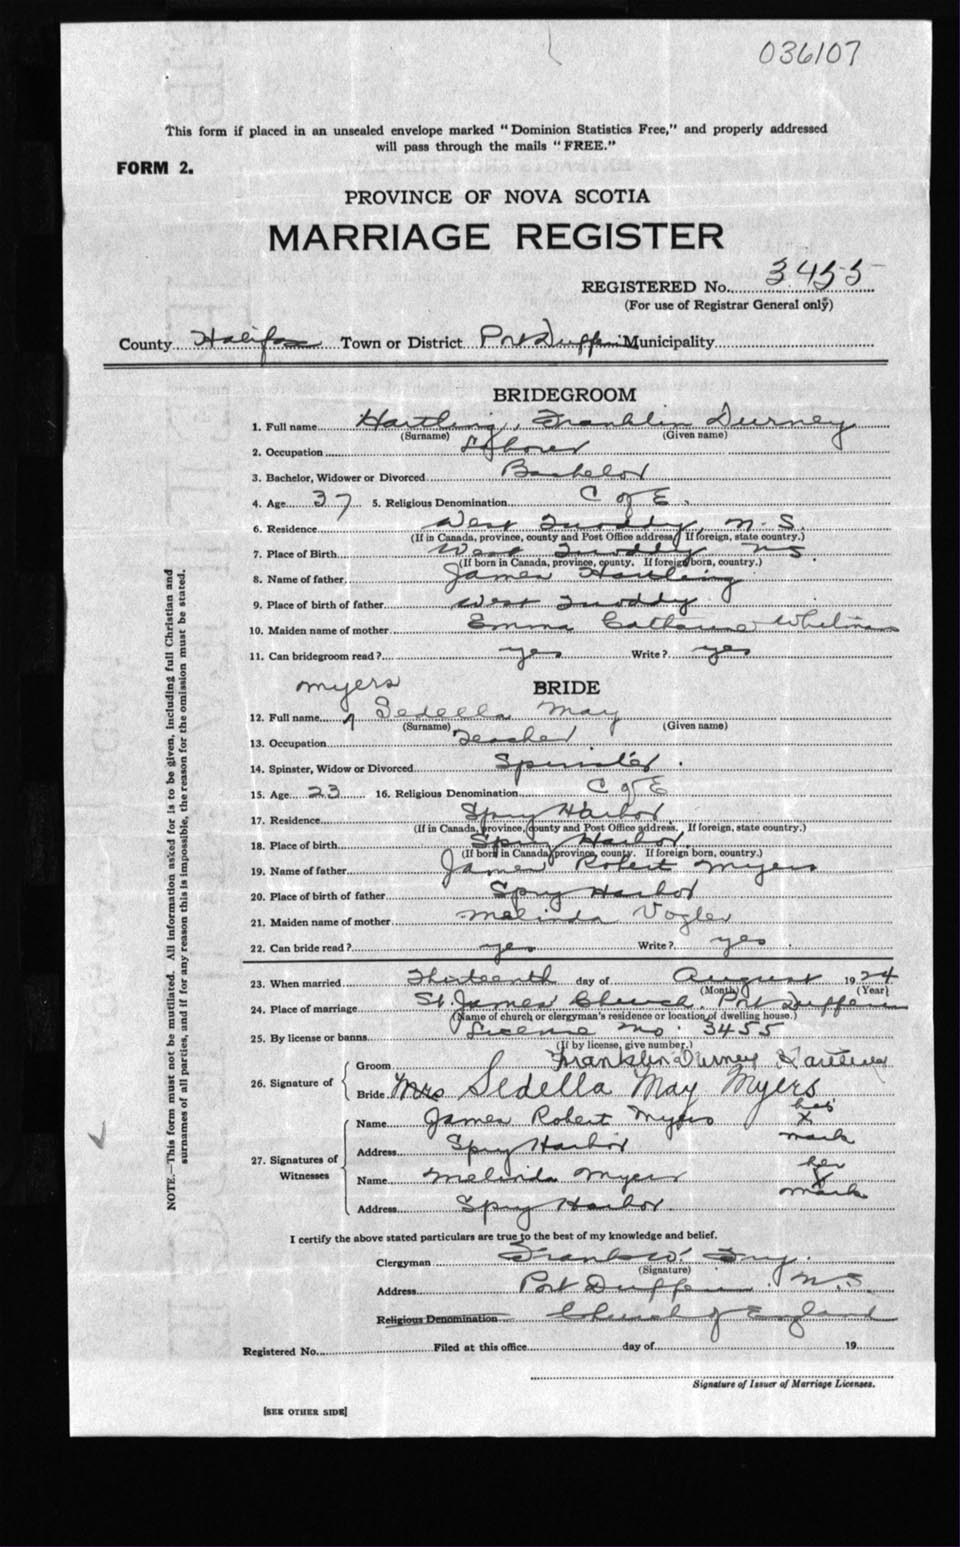 036107
This form if placed in an unsealed envelope marked "Dominion Statistics Free," and properly addressed
will pass through the mails "FREE."
FORM 2.
PROVINCE OF NOVA SCOTIA
MARRIAGE REGISTER
REGISTERED No. 3455
(For use of Registrar General only)
County Halifax Town or District Port Dufferin Municipality
BRIDEGROOM
1. Full name Hartling, Franklin Durney
(Surname) (Given name)
2. Occupation Laborer
3. Bachelor, Widower or Divorced Bachelor
4. Age 37 5. Religious Denomination C of E.
6. Residence West Quoddy, N.S.
(If in Canada, province, county and Post Office address. If foreign, state country.)
7. Place of Birth West Quoddy NS.
(If born in Canada, province, county. If foreign born, country.)
8. Name of father James Hartling
9. Place of birth of father West Quoddy
10. Maiden name of mother Emma Catharine
11. Can bridegroom read? yes Write? yes
Myers
BRIDE
12. Full name Sedella May
(Surname) (Given name)
13. Occupation Teacher
14. Spinster, Widow or Divorced Spinster.
15. Age 23 16. Religious Denomination C of E
17. Residence Spry Harbor
(If in Canada, province, county and Post Office address. If foreign, state country.)
18. Place of birth Spry Harbor.
(If born in Canada, province, county. If foreign born, country.)
19. Name of father James Robert Myers
20. Place of birth of father Spry Harbor
21. Maiden name of mother Melinda Vogler
22. Can bride read? yes Write? yes.
23. When married Thirteenth day of August 1924
(Month) (Year)
24. Place of marriage St. James Church. Port Dufferin
(Name of church or clergyman's residence or location of dwelling house.)
25. By license or banns License No. 3455
(If by license, give number.)
26. Signature of
Groom Franklin Durney Hartling
Bride Mrs Sedella May Myers
27. Signatures of Witnesses
Name James Robert Myers his X mark
Address Spry Harbor
Name Melinda Myers her X mark
Address Spry Harbor.
I certify the above stated particulars are true to the best of my knowledge and belief.
Clergyman Frank W.
(Signature)
Address Port Dufferin. N.S.
Religious Denomination Church of England
Registered No. Filed at this office day of 19
Signature of Issuer of Marriage Licenses.
[SEE OTHER SIDE]
NOTE.—This form must not be mutilated. All information asked for is to be given, including full Christian and
surnames of all parties, and if for any reason this is impossible, the reason for the omission must be stated.